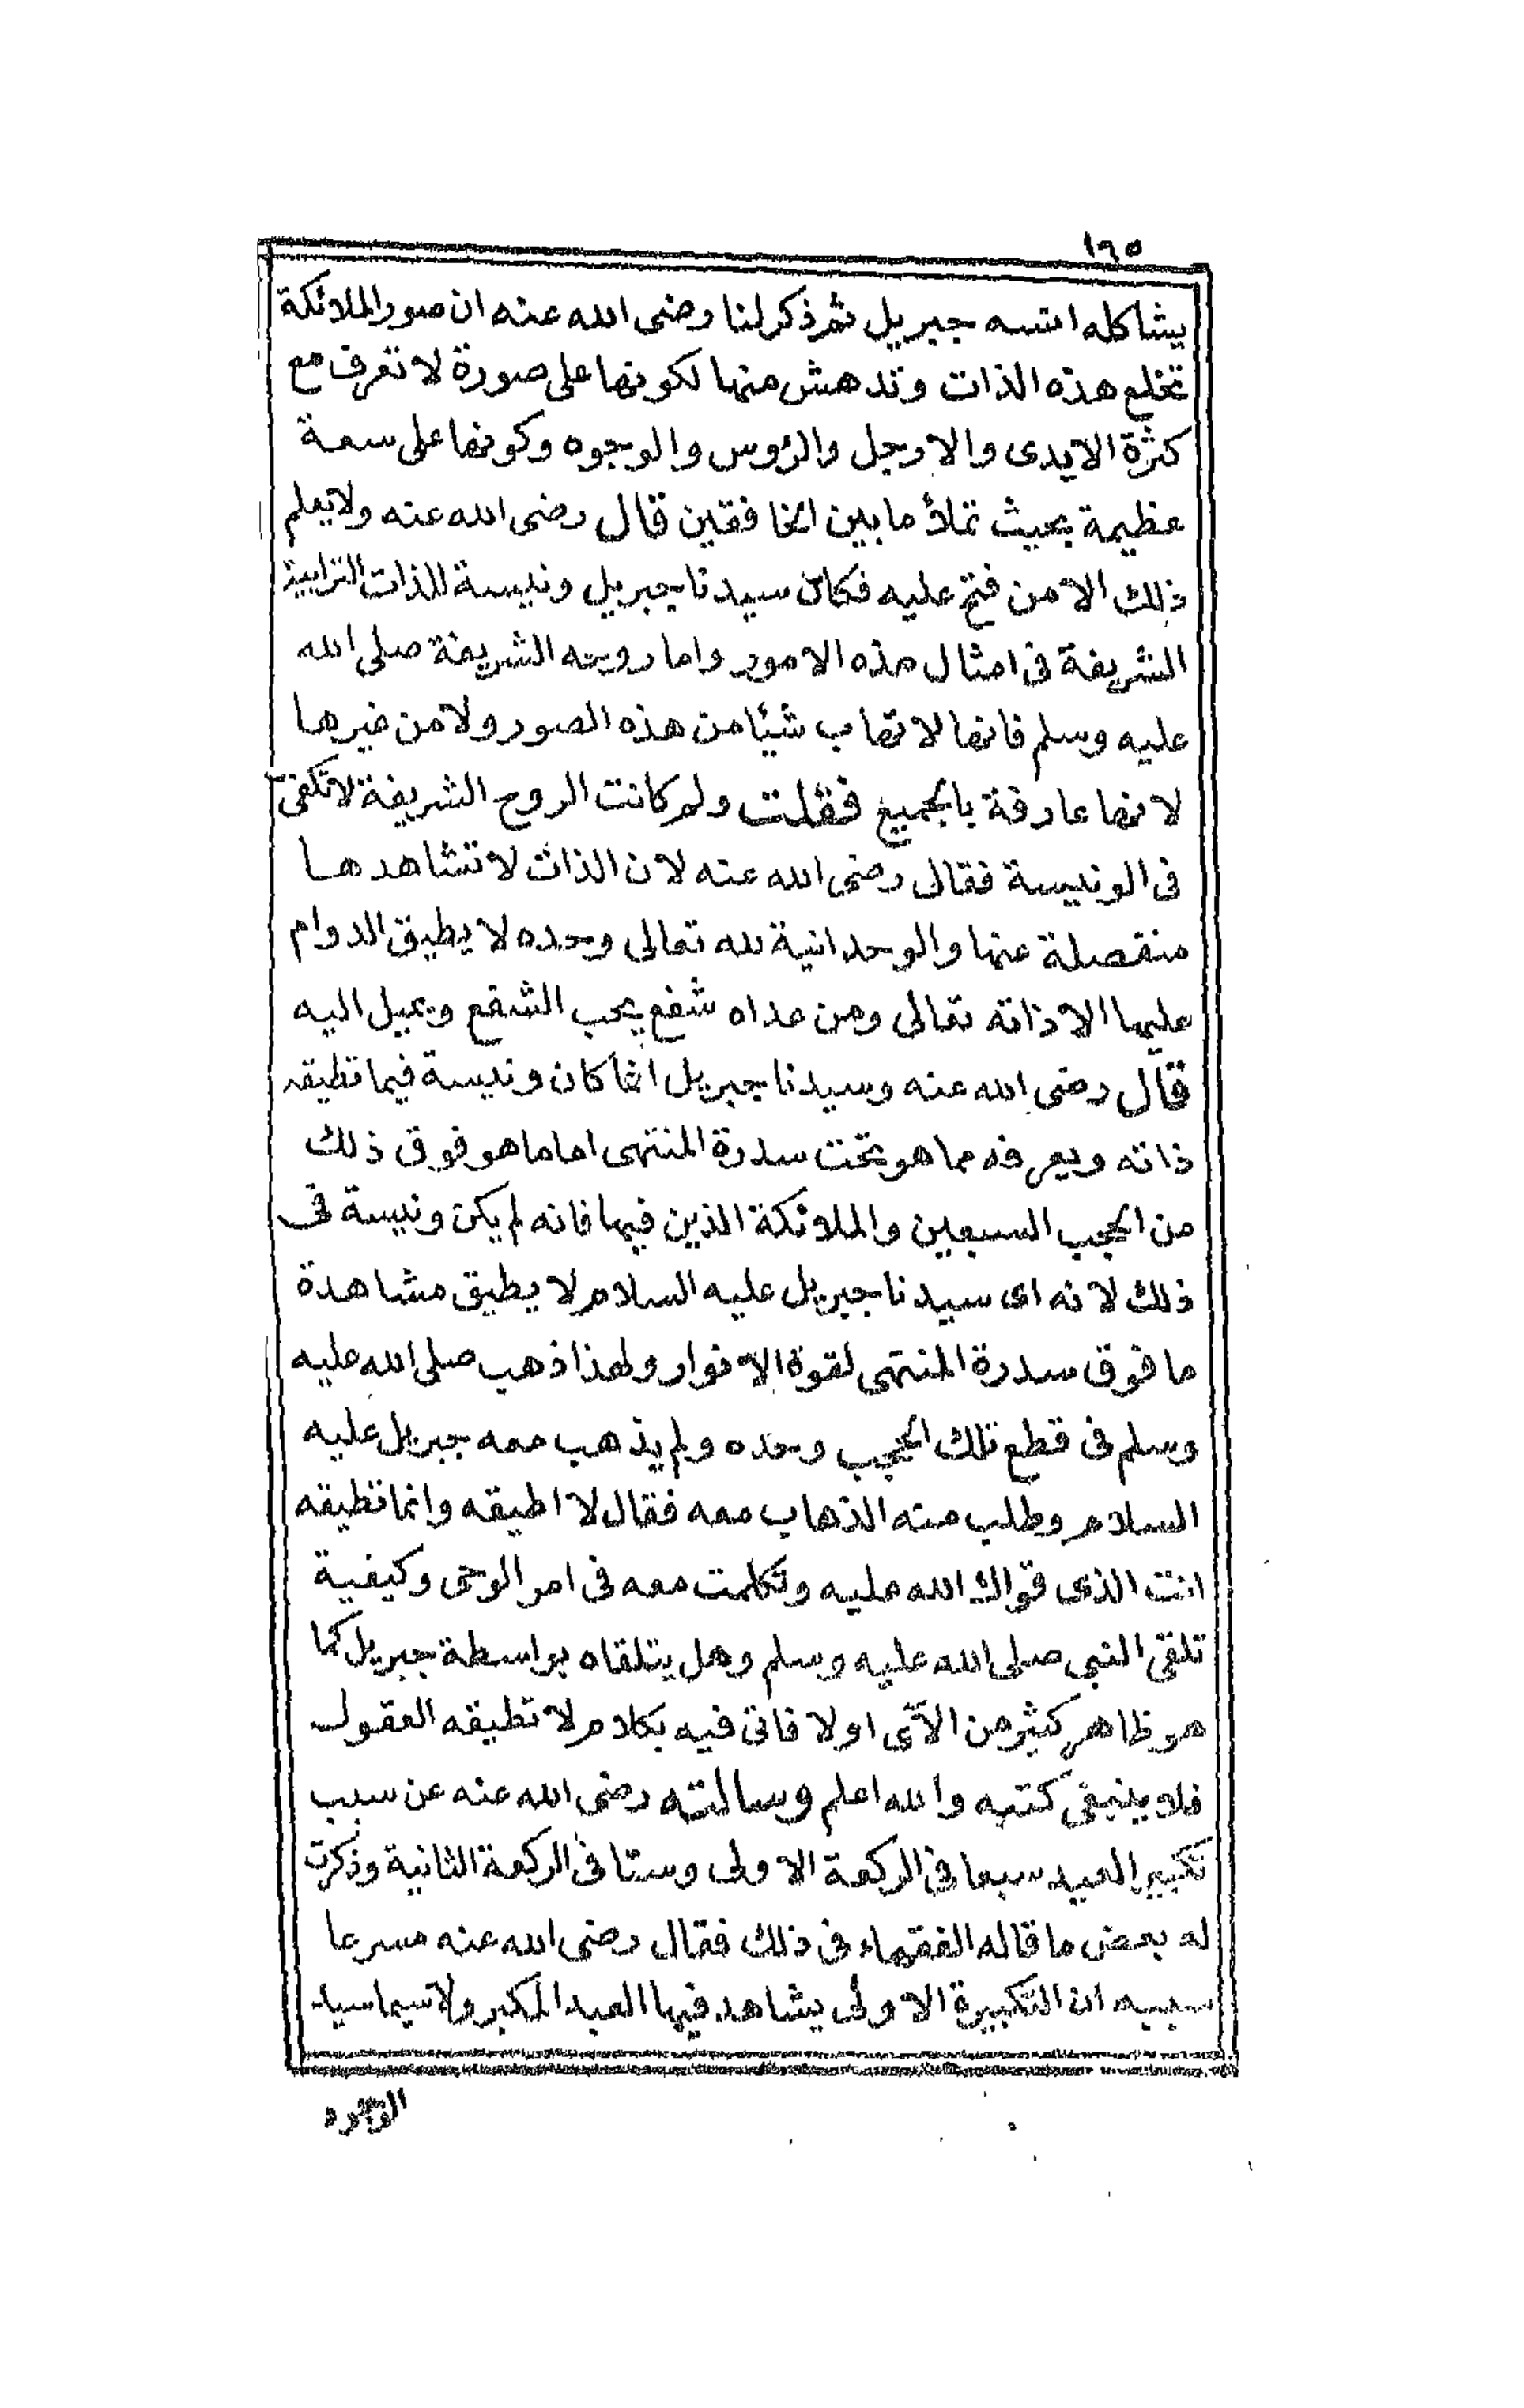 ١٦٥
يشاكله انسه جبريل ثم ذكر لنا رضى الله عنه ان صور الملائكة
تخلع هذه الذات وتدهش منها لكونها على صورة لا تعرف مع
كثرة الايدى والارجل والرؤس والوجوه وكونها على سعة
عظيمة بحيث تملأ ما بين الخافقين قال رضى الله عنه ولا يعلم
ذلك الا من فتح عليه فكان سيدنا جبريل ونيسة للذات الترابية
الشريفة فى امثال هذه الامور واما روحه الشريفة صلى الله
عليه وسلم فانها لا تهاب شيئا من هذه الصور ولا من غيرها
لانها عارفة بالجميع فقلت ولم كانت الروح الشريفة لا تكفى
فى الونيسة فقال رضى الله عنه لان الذات لا تشاهدها
منفصلة عنها والوحدانية لله تعالى وحده لا يطيق الدوام
عليها الا ذاته تعالى ومن عداه شفع يحب الشفع ويميل اليه
قال رضى الله عنه وسيدنا جبريل انما كان ونيسة فيما تطيقه
ذاته ويعرفه مما هو تحت سدرة المنتهى اما ما هو فوق ذلك
من الحجب السبعين والملائكة الذين فيها فانه لم يكن ونيسة فى
ذلك لانه اى سيدنا جبريل عليه السلام لا يطيق مشاهدة
ما فوق سدرة المنتهى لقوة الانوار ولهذا ذهب صلى الله عليه
وسلم فى قطع تلك الحجب وحده ولم يذهب معه جبريل عليه
السلام وطلب منه الذهاب معه فقال لا اطيقه وانما تطيقه
انت الذى قواك الله عليه وتكلمت معه فى امر الوحى وكيفية
تلقى النبى صلى الله عليه وسلم وهل يتلقاه بواسطة جبريل كما
هو ظاهر كثير من الآى اولا فاتى فيه بكلام لا تطيقه العقول
فلا ينبغى كتبه والله اعلم وسالته رضى الله عنه عن سبب
تكبير العيد سبعا فى الركعة الاولى وستا فى الركعة الثانية وذكرت
له بعض ما قاله الفقهاء فى ذلك فقال رضى الله عنه مسرعا
سببه ان التكبيرة الاولى يشاهد فيها العبد المكبر ولا سيما سيد